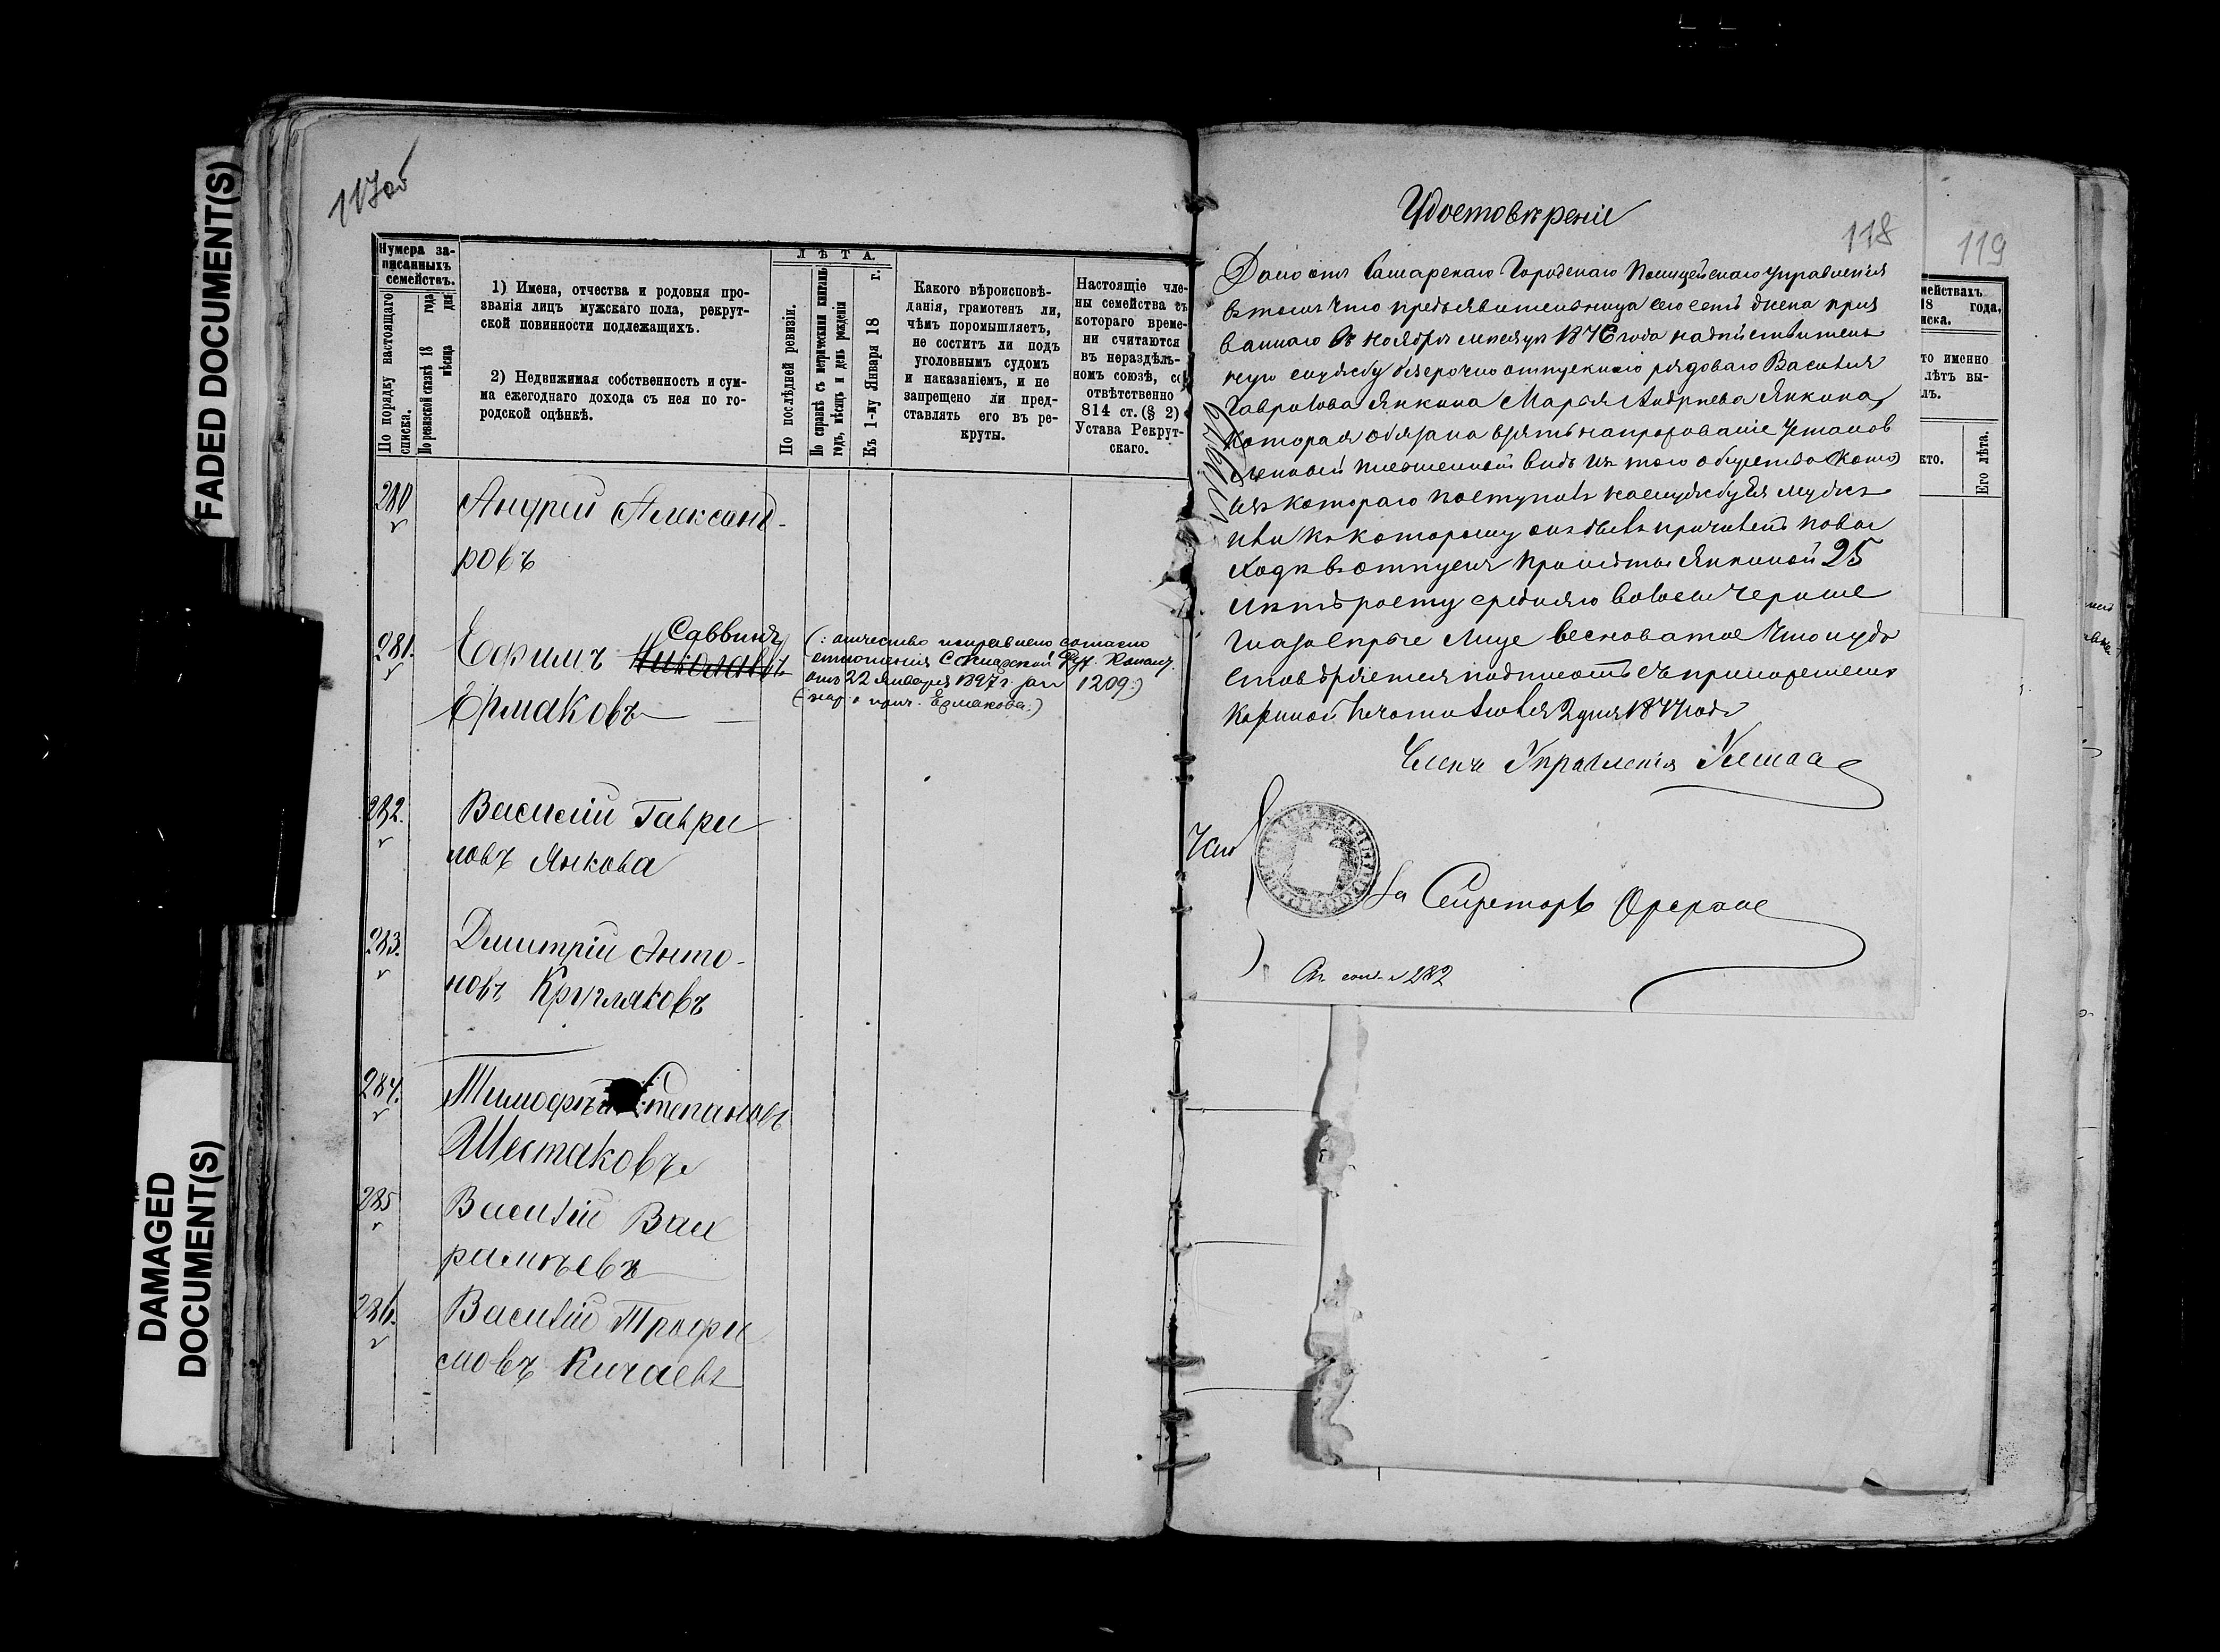 FADED DOCUMENT(S)
DAMAGED
DOCUMENT(S)
117об
Нумера за-
писанныхъ
семействъ.
По порядку настоящаго
списка.
По ревизской сказкѣ 18 года
мѣсяца дня
1) Имена, отчества и родовыя про-
званія лицъ мужскаго пола, рекрут-
ской повинности подлежащихъ.
2) Недвижимая собственность и сум-
ма ежегоднаго дохода съ нея по го-
родской оцѣнкѣ.
ЛѢТА.
По послѣдней ревизіи.
По справкѣ съ метрическими книгами
годъ, мѣсяцъ и день рожденія
Къ 1-му Января 18 г.
Какого вѣроисповѣ-
данія, грамотенъ ли,
чѣмъ поромышляетъ,
не соститъ ли подъ
уголовнымъ судомъ
и наказаніемъ, и не
запрещено ли пред-
ставлять его въ ре-
круты.
Настоящіе чле-
ны семейства съ
котораго време-
ни считаются
въ нераздѣль-
номъ союзѣ, со
отвѣтственно
814 ст. (§ 2)
Устава Рекрут-
скаго.
280 Андрей Александ-
ровъ
281. Ефимъ Николаевъ Саввинъ
Ермаковъ
(: отчество исправлено согласно
отношенія Самарской Дух. Консист.
отъ 22 Января 1897 г. за № 1209:)
282. Василій Гаври
ловъ Янкова
283. Дмитрій Анто-
новъ Кругляковъ
284. Тимофѣй Степановъ
Шестаковъ
285 Василій Вах
рамѣевъ
286. Василій Трофи
мовъ Кичаевъ
Удостовѣреніе
118
Дано отъ Самарскаго Городскаго Полицейскаго Управленія
въ томъ что предъявительница сего есть жена приз
ваннаго въ Ноябрѣ мѣсяцѣ 1876 года на дѣйствитель
ную службу безсрочно отпускного рядоваго Василія
Гаврилова Янкина Марья Андреева Янкина,
которая обязана взять на прозованіе установ
ленный письменный видъ изъ того общества
изъ котораго поступилъ на службу Ея мужъ
или къ которому онъ былъ причисленъ
въ отпускъ примѣты Янкиной 25
лѣтъ росту средняго волосы черные
глаза сѣрые лице весноватое что и удо
стовѣряется подписомъ съ приложеніемъ
казенной печати Іюля 2 дня 1877 года
Членъ Управленія
За Секретарь
Къ сем. № 282
119
мействахъ
18 года,
иска.
то именно
лѣтъ вы-
лъ.
кто.
Его лѣта.